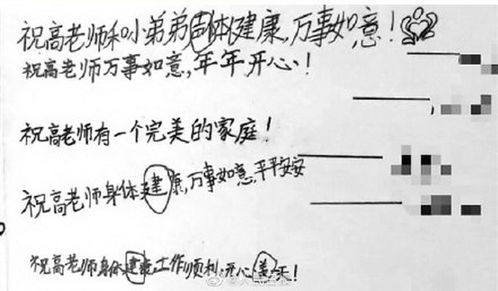 祝高老师和小弟弟身体健康,万事如意!
祝高老师万事如意,年年开心!
祝高老师有一个完美的家庭!
祝高老师身体建康,万事如意,平平安安
祝高老师身体建康工作顺利,开心美天!